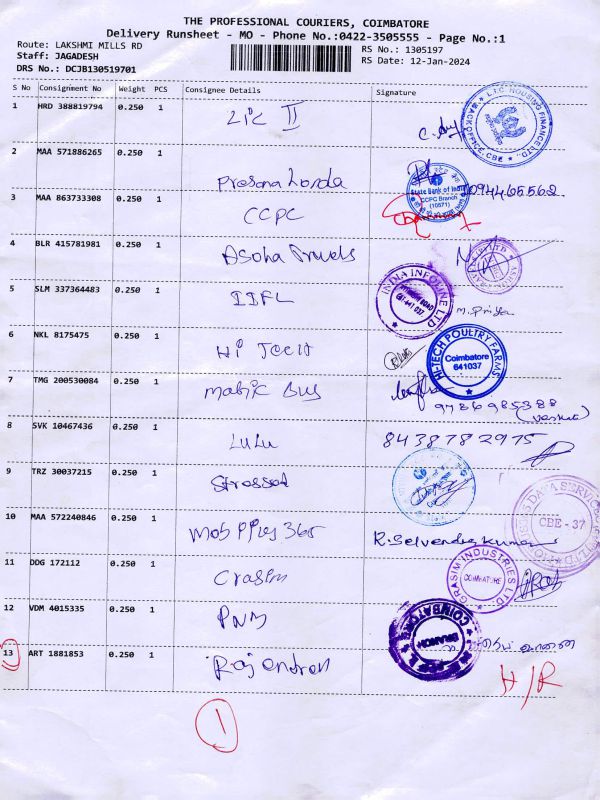 THE PROFESSIONAL COURIERS, COIMBATORE
Delivery Runsheet - MO - Phone No.:0422-3505555 - Page No.:1
Route: LAKSHMI MILLS RD
RS No.: 1305197
Staff: JAGADESH
RS Date: 12-Jan-2024
DRS No.: DCJB130519701
S No Consignment No Weight PCS Consignee Details Signature
1 HRD 388819794 0.250 1 LIC II
L.I.C. HOUSING FINANCE LTD.
BACK OFFICE, CBE
2 MAA 571886265 0.250 1
State Bank of India
CCPC Branch
(10571)
3 MAA 863733308 0.250 1 CCPC
4 BLR 415781981 0.250 1
5 SLM 337364483 0.250 1 IIFL
INDIA INFOLINE LTD
M. Priya
6 NKL 8175475 0.250 1
HI-TECH POULTRY FARMS
Coimbatore
641037
7 TMG 200530084 0.250 1 Magic Bus
9786985388
8 SVK 10467436 0.250 1 LuLu 8438782975
9 TRZ 30037215 0.250 1
10 MAA 572240846 0.250 1 R. Selvendra kumar
CBE - 37
11 DDG 172112 0.250 1 Grasim
GRASIM INDUSTRIES LTD
COIMBATORE
12 VDM 4015335 0.250 1
COIMBATORE
BRANCH
13 ART 1881853 0.250 1 Rajendran
H/R
1